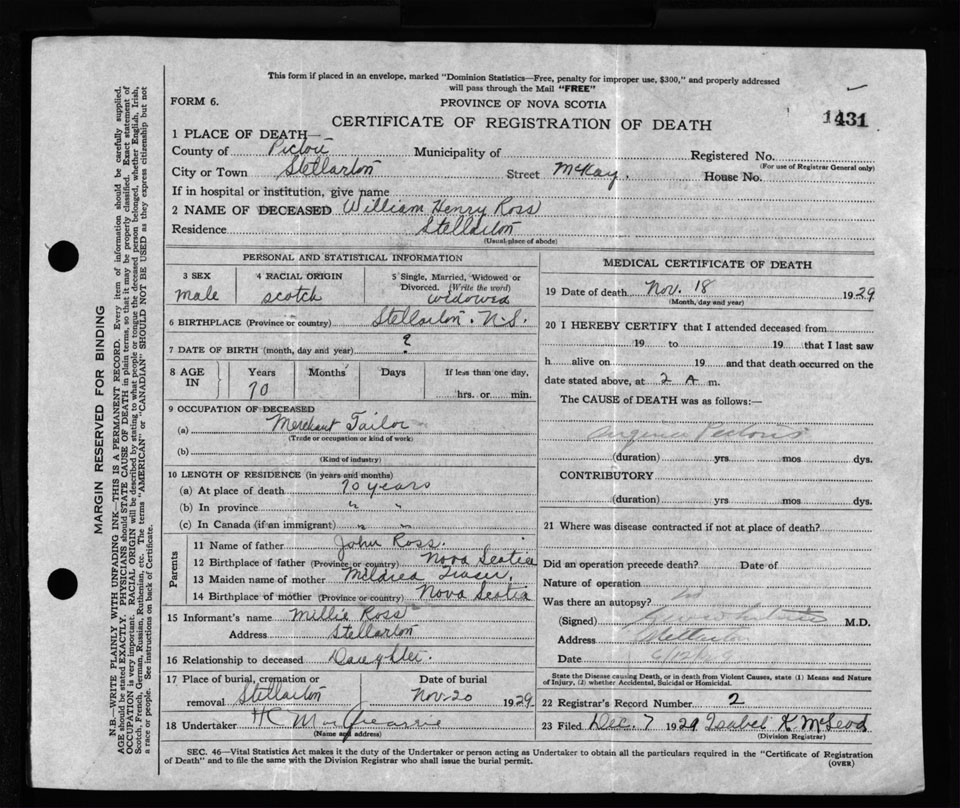 This form if placed in an envelope, marked "Dominion Statistics—Free, penalty for improper use, $300," and properly addressed
will pass through the Mail "FREE"
FORM 6.
PROVINCE OF NOVA SCOTIA
1431
CERTIFICATE OF REGISTRATION OF DEATH
1 PLACE OF DEATH—
County of Pictou Municipality of Registered No.
(For use of Registrar General only)
City or Town Stellarton Street McKay. House No.
If in hospital or institution, give name
2 NAME OF DECEASED William Henry Ross
Residence Stellarton
(Usual place of abode)
PERSONAL AND STATISTICAL INFORMATION
3 SEX 4 RACIAL ORIGIN 5 Single, Married, Widowed or
Divorced. (Write the word)
male scotch widowed
6 BIRTHPLACE (Province or country) Stellarton. N.S.
7 DATE OF BIRTH (month, day and year) ?
8 AGE IN Years Months Days If less than one day,
70 hrs. or min.
9 OCCUPATION OF DECEASED
(a) Merchant Tailor
(Trade or occupation or kind of work)
(b)
(Kind of industry)
10 LENGTH OF RESIDENCE (in years and months)
(a) At place of death 70 years
(b) In province " "
(c) In Canada (if an immigrant) " "
Parents
11 Name of father John Ross.
12 Birthplace of father (Province or country) Nova Scotia
13 Maiden name of mother Mildred Fraser.
14 Birthplace of mother (Province or country) Nova Scotia
15 Informant's name Millie Ross
Address Stellarton
16 Relationship to deceased Daughter.
17 Place of burial, cremation or Date of burial
removal Stellarton Nov 20 1929
18 Undertaker H C
(Name and address)
MEDICAL CERTIFICATE OF DEATH
19 Date of death Nov. 18 1929
(Month, day and year)
20 I HEREBY CERTIFY that I attended deceased from
19 to 19 that I last saw
h alive on 19 and that death occurred on the
date stated above, at 2 A m.
The CAUSE of DEATH was as follows:—
Angina Pectoris
(duration) yrs mos dys.
CONTRIBUTORY
(duration) yrs mos dys.
21 Where was disease contracted if not at place of death?
Did an operation precede death? Date of
Nature of operation
Was there an autopsy? no
(Signed) M.D.
Address Stellarton
Date 6/12/29
State the Disease causing Death, or in death from Violent Causes, state (1) Means and Nature
of Injury, (2) whether Accidental, Suicidal or Homicidal.
22 Registrar's Record Number 2
23 Filed Dec. 7 1929 Isabel K McLeod
(Division Registrar)
SEC. 46—Vital Statistics Act makes it the duty of the Undertaker or person acting as Undertaker to obtain all the particulars required in the "Certificate of Registration
of Death" and to file the same with the Division Registrar who shall issue the burial permit.
(OVER)
MARGIN RESERVED FOR BINDING
N.B.—WRITE PLAINLY WITH UNFADING INK—THIS IS A PERMANENT RECORD. Every item of information should be carefully supplied.
AGE should be stated EXACTLY. PHYSICIANS should STATE CAUSE OF DEATH in plain terms, so that it may be properly classified. Exact statement of
OCCUPATION is very important. RACIAL ORIGIN will be described by stating to what people or tongue the deceased person belonged, whether English, Irish,
Scotch, French, German, Russian, Ruthenian, etc. The terms "AMERICAN" or "CANADIAN" SHOULD NOT BE USED as they express citizenship but not
a race or people. See instructions on back of Certificate.